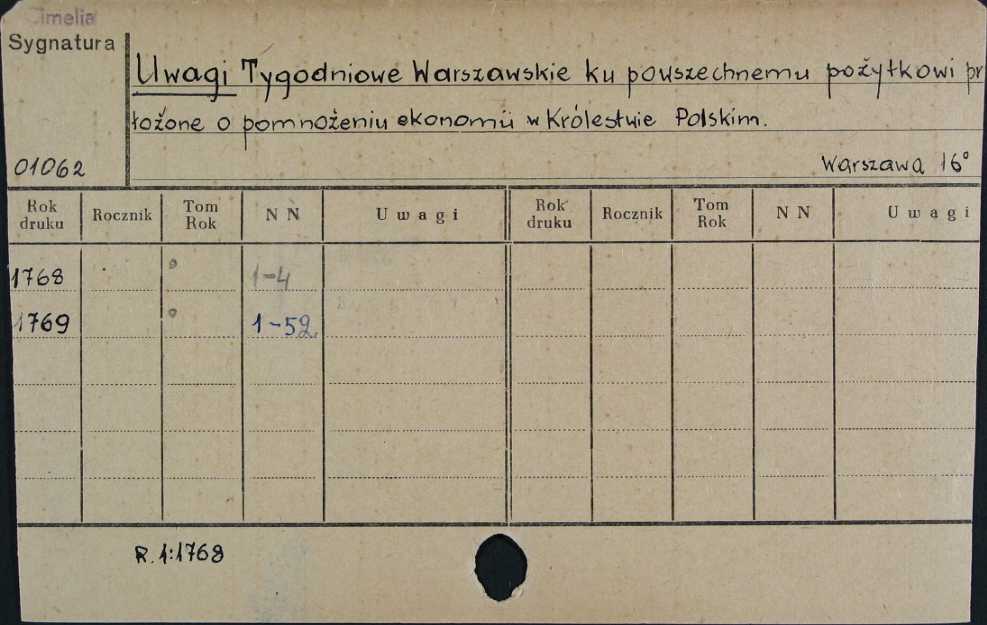 Cimelia
Sygnatura
Uwagi Tygodniowe Warszawskie ku powszechnemu pożytkowi pr
łożone o pomnożeniu ekonomii w Królestwie Polskim.
01062
Warszawa 16°
Rok druku Rocznik Tom Rok N N Uwagi Rok druku Rocznik Tom Rok N N Uwagi
1768 ° 1-4
1769 ° 1-52
R. 1:1768